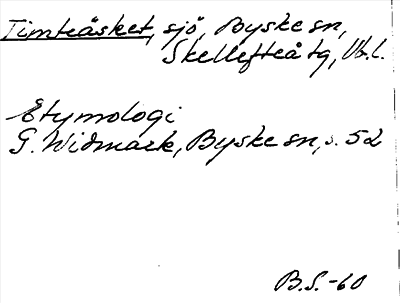 Timteåsket, sjö, Byske sn,
Skellefteå tg, Vb.l.
Etymologi
G. Widmark, Byske sn, s. 52
B.S.-60